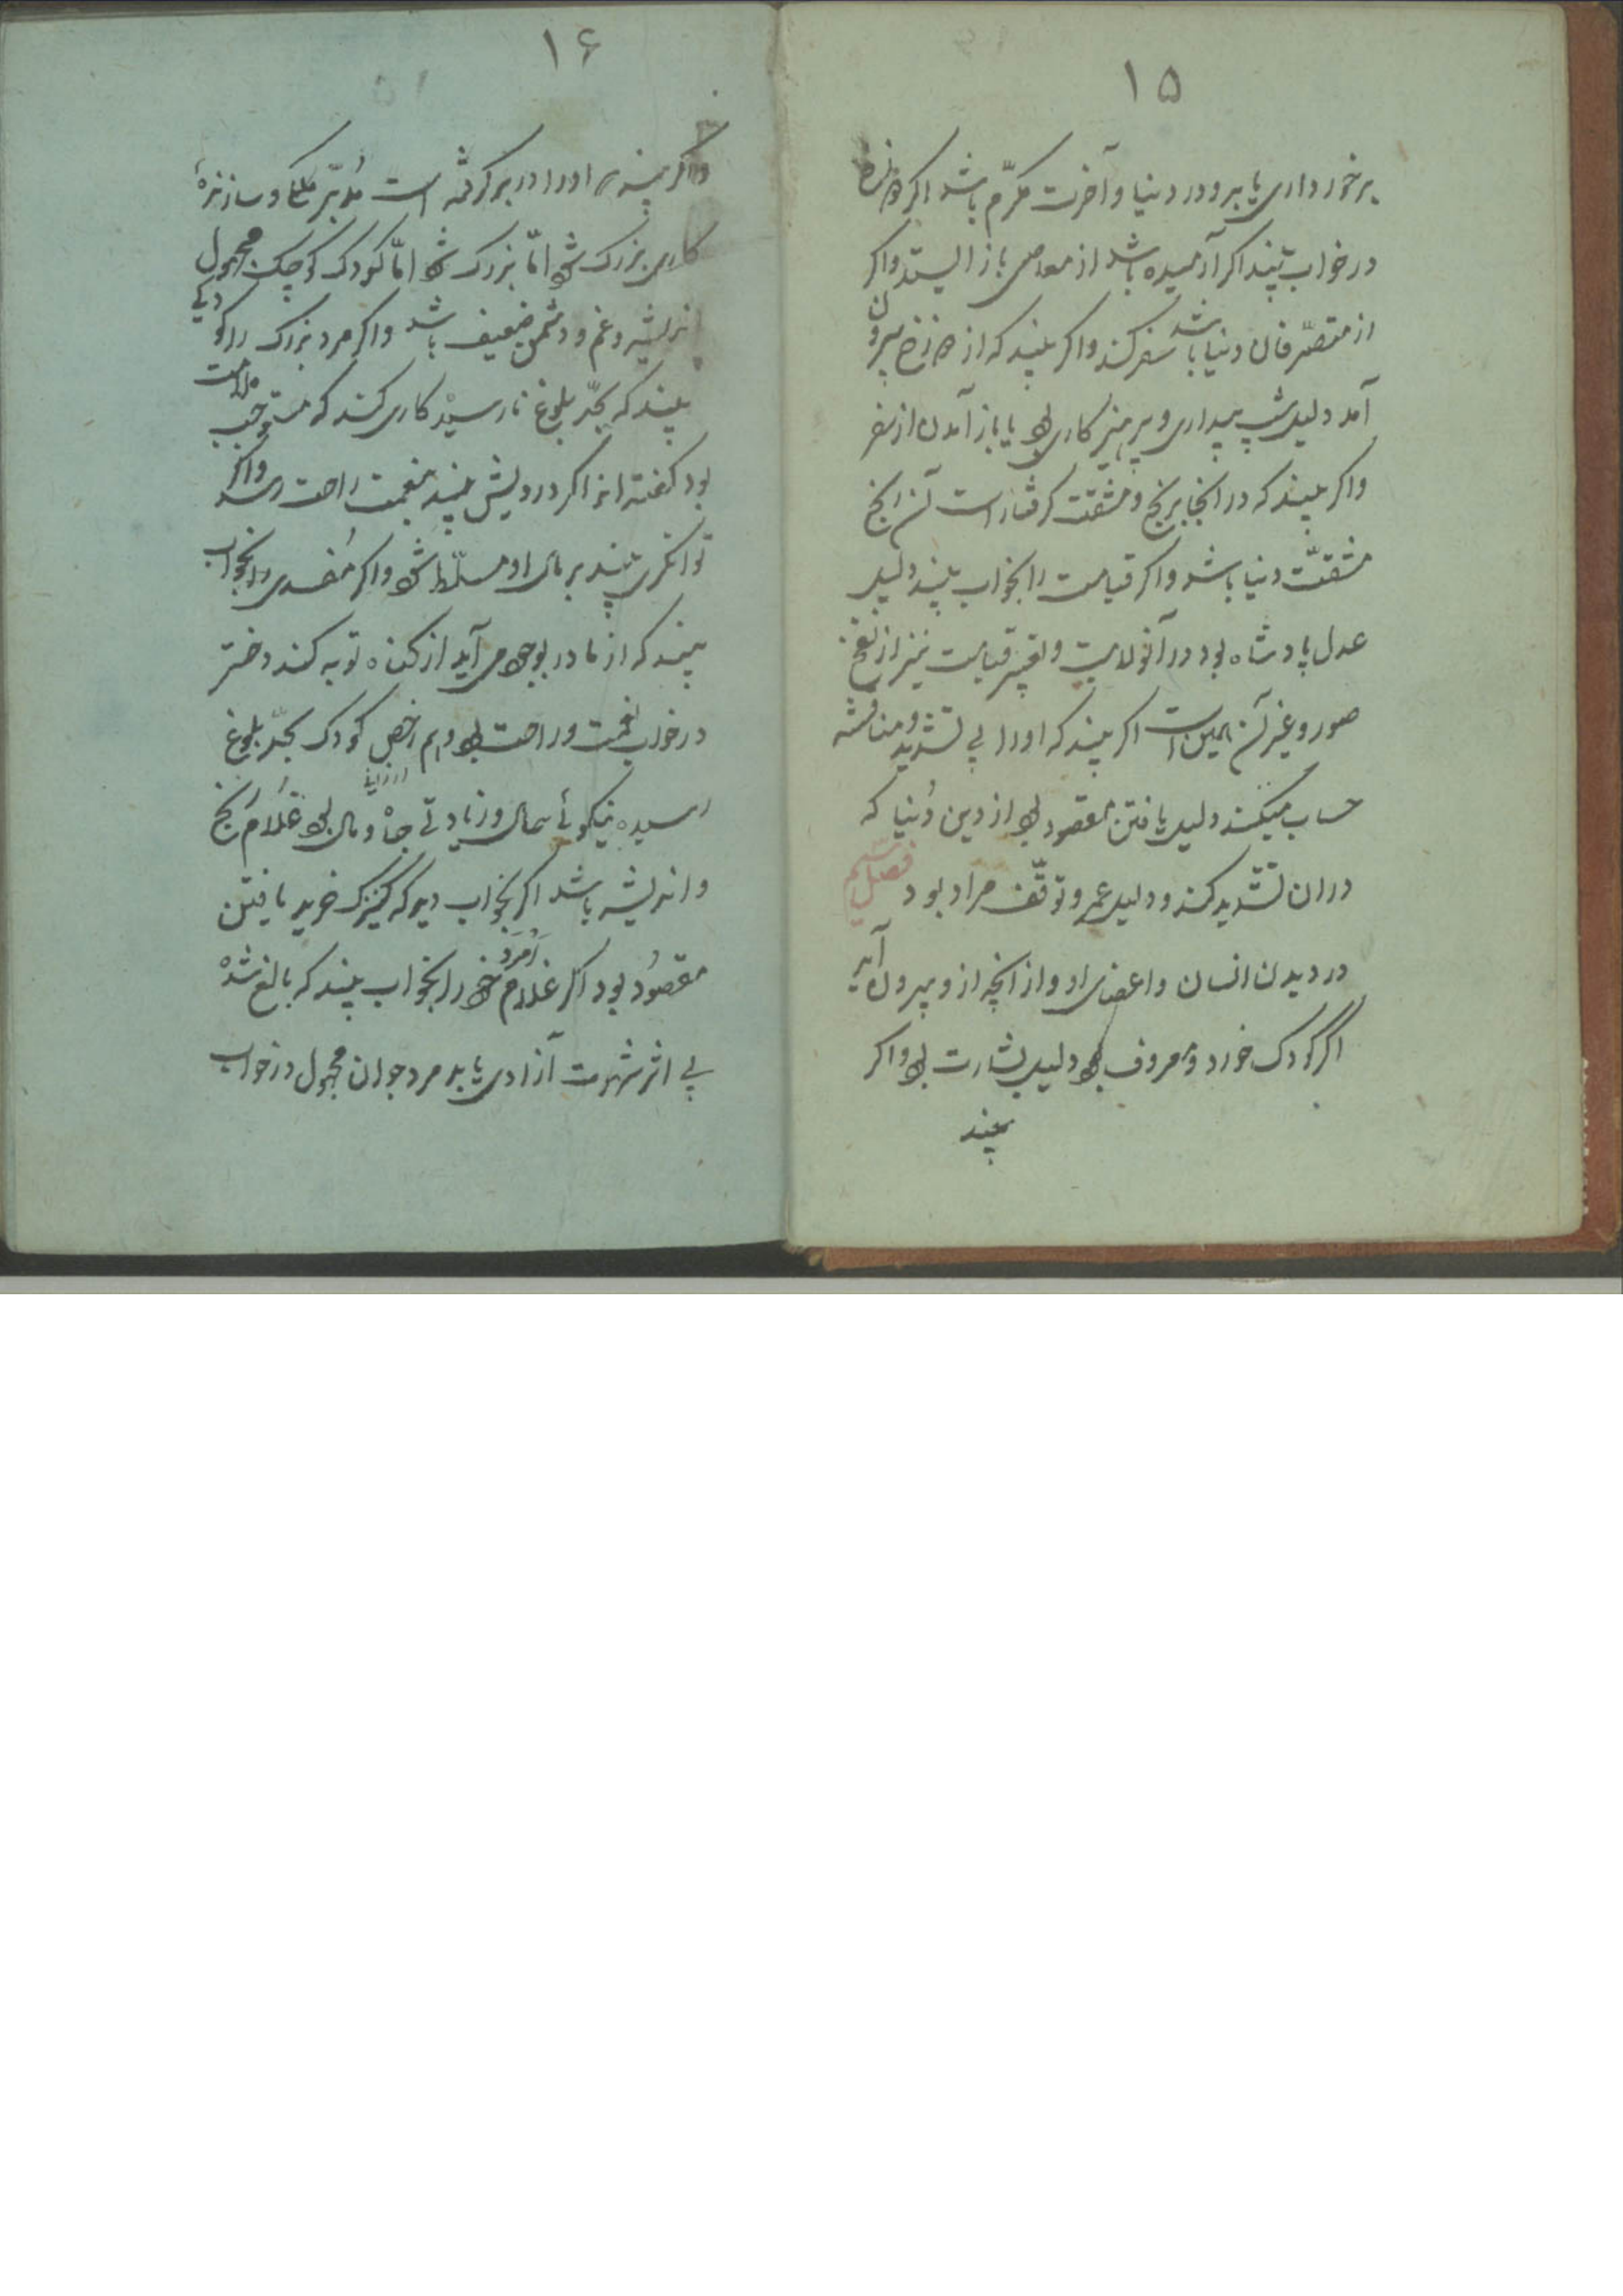 ۱۵
برخورداری یابد و در دنیا و آخرت مکرّم باشد اگر دوزخ را
در خواب بیند اگر آرمیده باشد از معاصی باز ایستد و اگر
از متصرّفان دنیا باشد سفر کند و اگر بیند که از دوزخ بیرون
آمد دلیل شب بیداری و پرهیزکاری بود یا باز آمدن از سفر
و اگر بیند که در آنجا برنج و مشقت گرفتار است آن رنج
مشقّت دنیا باشد و اگر قیامت را بخواب بیند دلیل
عدل پادشاه بود در آنولایت و تعبیر قیامت نیز از نفخ
صور و غیر آن همین است اگر بیند که او را بی تشدید و مناقشه
حساب میکنند دلیل یافتن مقصود بود از دین و دنیا که
در ان تشدید کنند و دلیل عمر و توقّف مراد بود فصل
در دیدن انسان و اعضای او و از انچه از و بیرون آید
اگر کودک خورد و معروف بود دلیل بشارت بود و اگر
بیند
۱۶
و اگر بیند که او را در بر گرفته است مدبّر ملک و سازندهٔ
کاری بزرگ شود امّا بزرگ شود امّا کودک کوچک مجهول
اندیشه و غم و دشمن ضعیف باشد و اگر مرد بزرگ را کودکی
بیند که بحدّ بلوغ نارسیده کاری کند که مستوجب ملامت
بود گفته اند اگر درویش بیند بنعمت راحت رسد و اگر
توانگری بیند بر مال او مسلّط شود و اگر مفسدی را بخواب
بیند که از مادر بوجود می آید از گناه توبه کند دختر
در خواب نعمت و راحت بود و هم ارخص کودک بحدّ بلوغ
ارزانی
رسیده نیکوئے سال و زیادتے جاه و مال بود غلام رنج
و اندیشه باشد اگر بخواب دید که کنیزک خرید یافتن
مقصود بود اگر غلام امرد خود را بخواب بیند که بالغ شده
بے اثر شهوت آزادی یابد مرد جوان مجهول در خواب